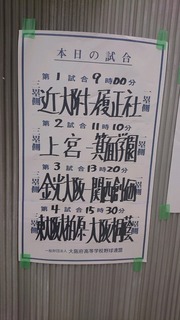 本日の試合
第1試合 9時00分
一塁側 近大附-履正社 三塁側
第2試合 11時10分
上宮-箕面学園
第3試合 13時20分
一塁側 金光大阪-関西創価 三塁側
第4試合 15時30分
東大阪大柏原-大阪偕星
一般財団法人 大阪府高等学校野球連盟